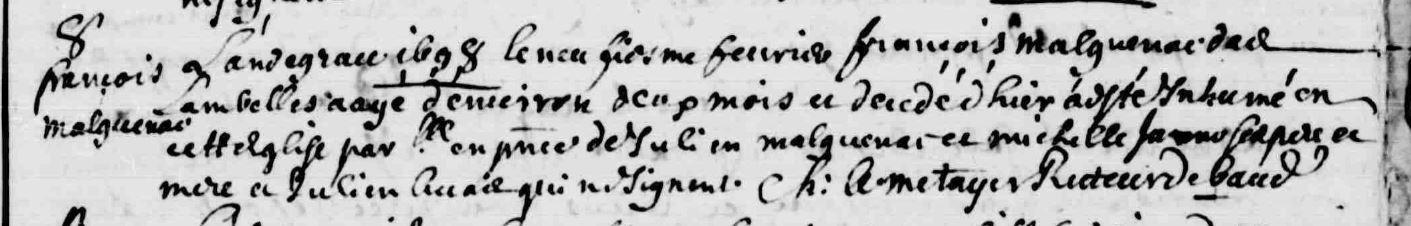 8
françois
malquenac
Landegrace 1698 le neufiesme feurier françois malquenac de
Lambelles aagé denuiron deux mois et decedé d'hier a esté Inhumé en
cette Eglise par en pnce de Julien malquenac et michelle ses pere et
mere et Julien qui ne signent. Ch: Le metayer Recteur De baud